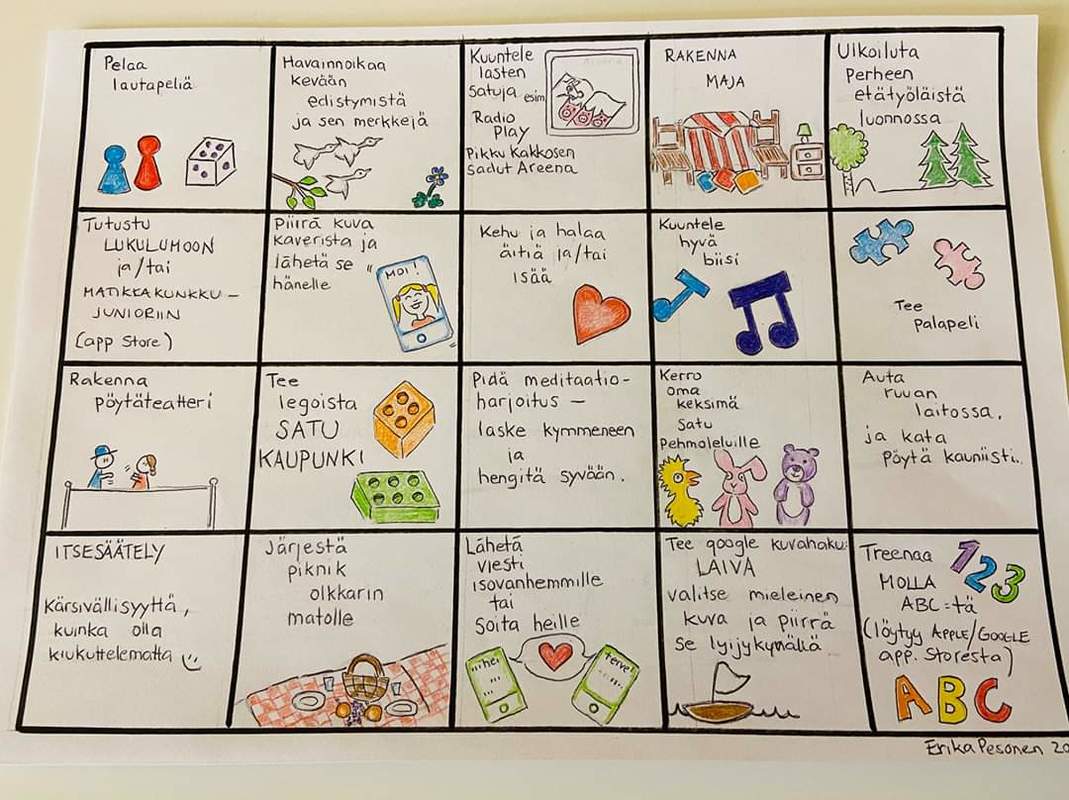 Pelaa
lautapeliä
Havainnoikaa
kevään
edistymistä
ja sen merkkejä
Kuuntele
lasten
satuja esim.
Radio
Play
Pikku Kakkosen
Sadut Areena
RAKENNA
MAJA
Ulkoiluta
perheen
etätyöläistä
luonnossa
Tutustu
LUKULUMOON
ja/tai
MATIKKAKUNKKU-
JUNIORIIN
(app Store)
Piirrä kuva
kaverista ja
lähetä se
hänelle
MOI!
Kehu ja halaa
äitiä ja/tai
isää
Kuuntele
hyvä
biisi
Tee
palapeli
Rakenna
pöytäteatteri
Tee
legoista
SATU
KAUPUNKI
Pidä meditaatio-
harjoitus -
laske kymmeneen
ja
hengitä syvään.
Kerro
oma
keksimä
satu
pehmoleluille
Auta
ruuan
laitossa,
ja kata
pöytä kauniisti..
ITSESÄÄTELY
Kärsivällisyyttä,
kuinka olla
kiukuttelematta
Järjestä
piknik
olkkarin
matolle
Lähetä
viesti
isovanhemmille
tai
Soita heille
hei
terve!
Tee google kuvahaku:
LAIVA
valitse mieleinen
kuva ja piirrä
se lyijykynällä.
Treenaa
123
MOLLA
ABC:tä
(löytyy APPLE/GOOGLE
app. Storesta)
ABC
Erika Pesonen 20